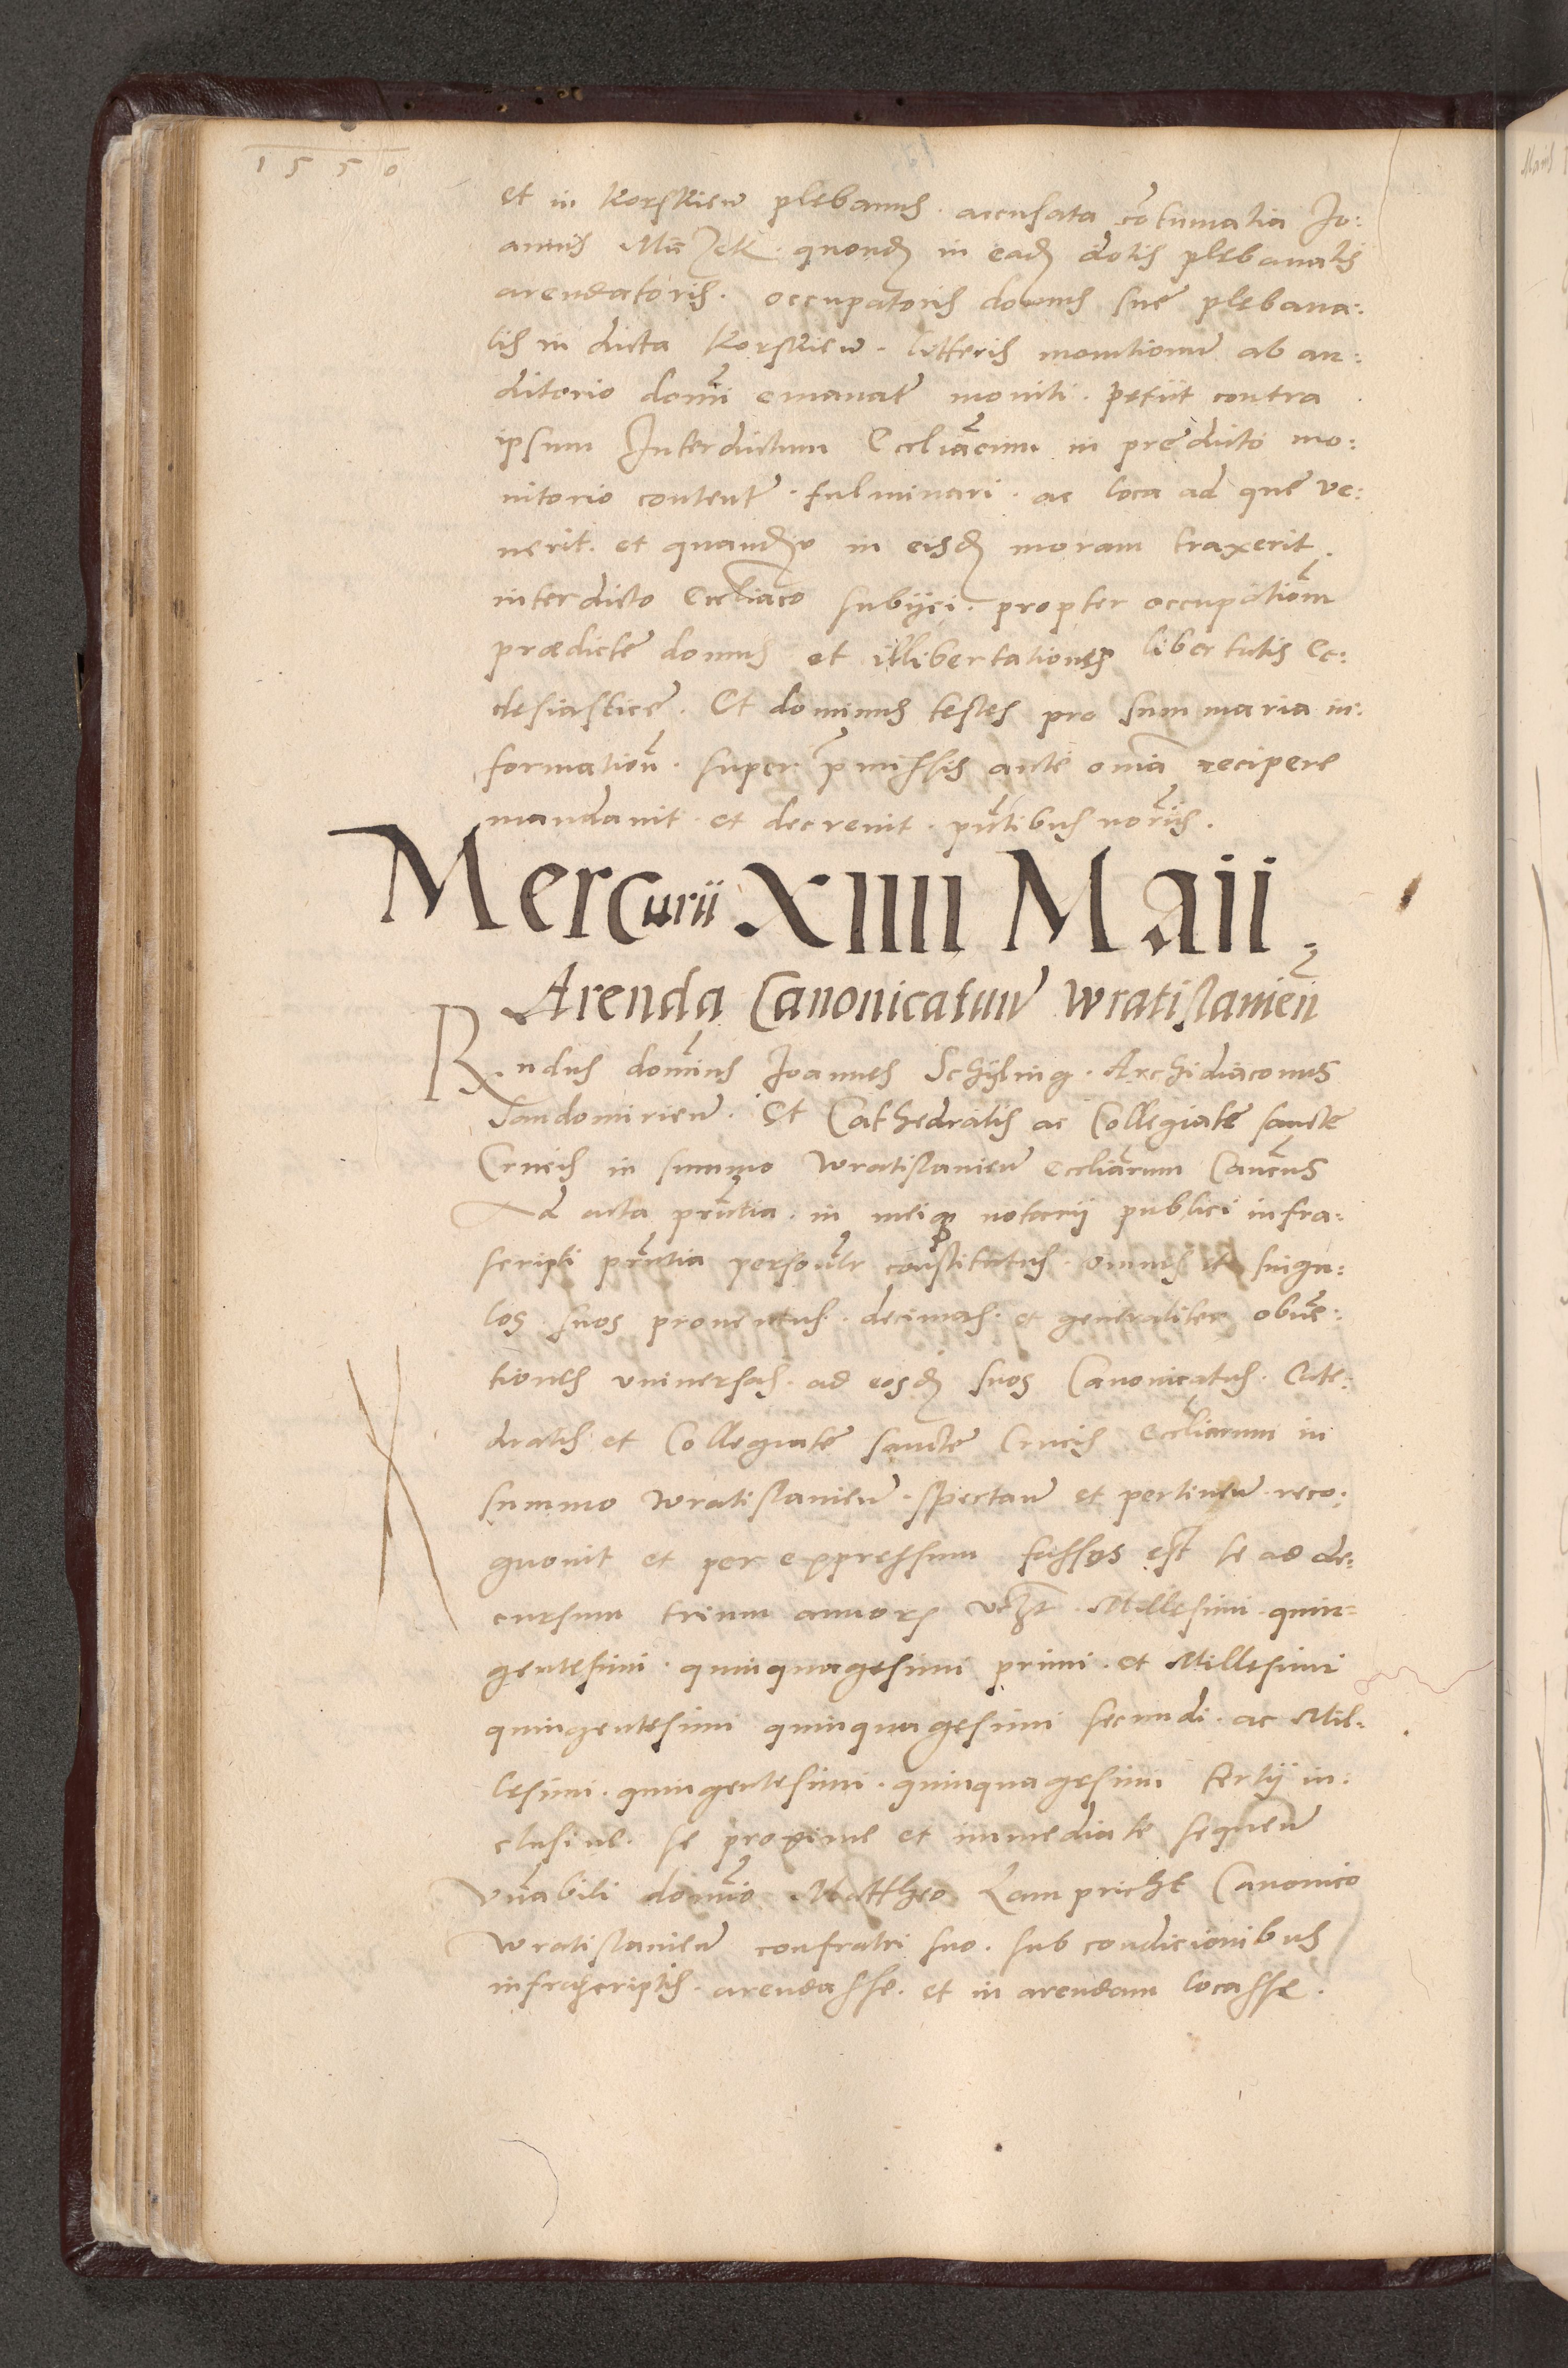 1550
et in Korskieñ plebanus. accusata cõtumatia Jo:
annis quond in ead dotis plebanalis
arendatoris. occupatoris domus sue plebana:
lis in dicta Korskieñ. litteris monitionũ ab au:
ditorio domĩ emanat moniti. petiit contra
ipsum Interdictum Eccliãcum in predicto mo:
nitorio content. fulminari. ac loca ad que ve:
nerit. et in eisd moram traxerit.
interdicto Eccliaco subijci. propter occupatiõm
prædicte domus et illibertationem libertatis Ec:
clesiastice. Et dominus testes pro summaria in:
formatiõñ. super p̃missis ante om̃ia recipere
mandauit. et decreuit. pñtibus notriis.
Mercurii XIIII Maii
Arenda Canonicatuũ Wratislauieñ
R.ndus domĩus Joannes Schÿling. Archidiaconus
Sandomirieñ. Et Cathedralis ac Collegiate sancte
Crucis in summo Wratislauieñ eccliãrum Canẽus
Ad acta pñtia. in meiq notarij publici infra:
scripti pñtia personlr constitutus. omnes et singu:
los suos prouentus. decimas. et generaliter obuẽ:
tiones vniuersas. ad eosd suos Canonicatus. Cate:
dralis et Collegiate sancte Crucis Eccliarum in
summo Wratislauieñ. spectañ et pertineñ. reco:
gnouit et per expressum fassus est se ad de:
cursum trium annor vczt. Millesimi quin=
gentesimi. quinquagesimi primi. et Millesimi
quingentesimi quinquagesimi secundi. ac Mil:
lesimi. quingentesimi. quinquagesimi tertij in:
clusiue. se proxime et immediate sequeñ
vñabili domĩo Mattheo Lampricht Canonico
Wratislauieñ confratri suo. sub condicionibus
infrascriptis. arendasse. et in arendam locasse.